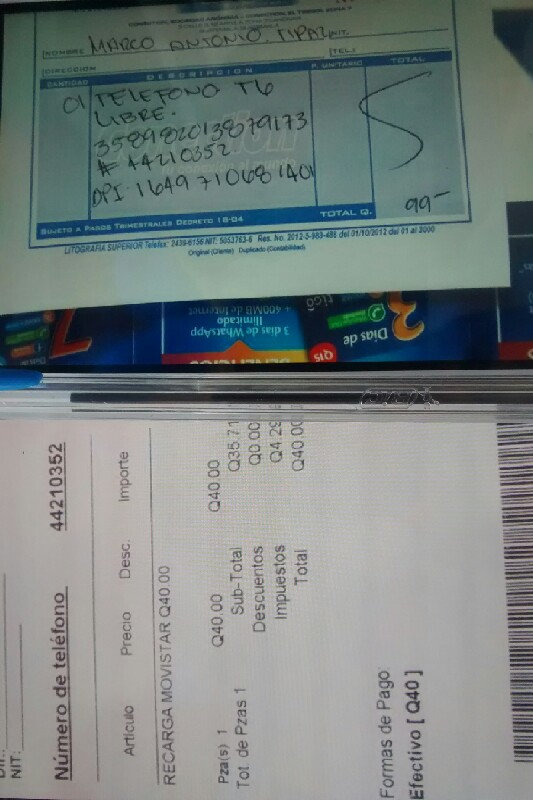 NOMBRE MARCO ANTONIO TIPAZ NIT.
DIRECCION TEL:
CANTIDAD DESCRIPCION P. UNITARIO TOTAL
01 TELEFONO T6
LIBRE.
358982013879173
# 44210352
DPI: 1649 71068 1401
SUJETO A PAGOS TRIMESTRALES DECRETO 18-04 TOTAL Q. 99-
LITOGRAFIA SUPERIOR Telefax: 2439-6156 NIT: 5053763-6 Res. No. 2012-5-983-486 del 01/10/2012 del 01 al 2000
Original (Cliente) Duplicado (Contabilidad)
3 Dias de
tigo
Q15
BENEFICIOS
3 días de WhatsApp
Ilimitado
+ 400MB de Internet
7
Dias de
DIR.:
NIT:
Número de teléfono 44210352
Artículo Precio Desc. Importe
RECARGA MOVISTAR Q40.00
Pza(s) 1 Q40.00 Q40.00
Tot. de Pzas 1 Sub-Total Q35.71
Descuentos Q0.00
Impuestos Q4.29
Total Q40.00
Formas de Pago:
Efectivo [ Q40 ]